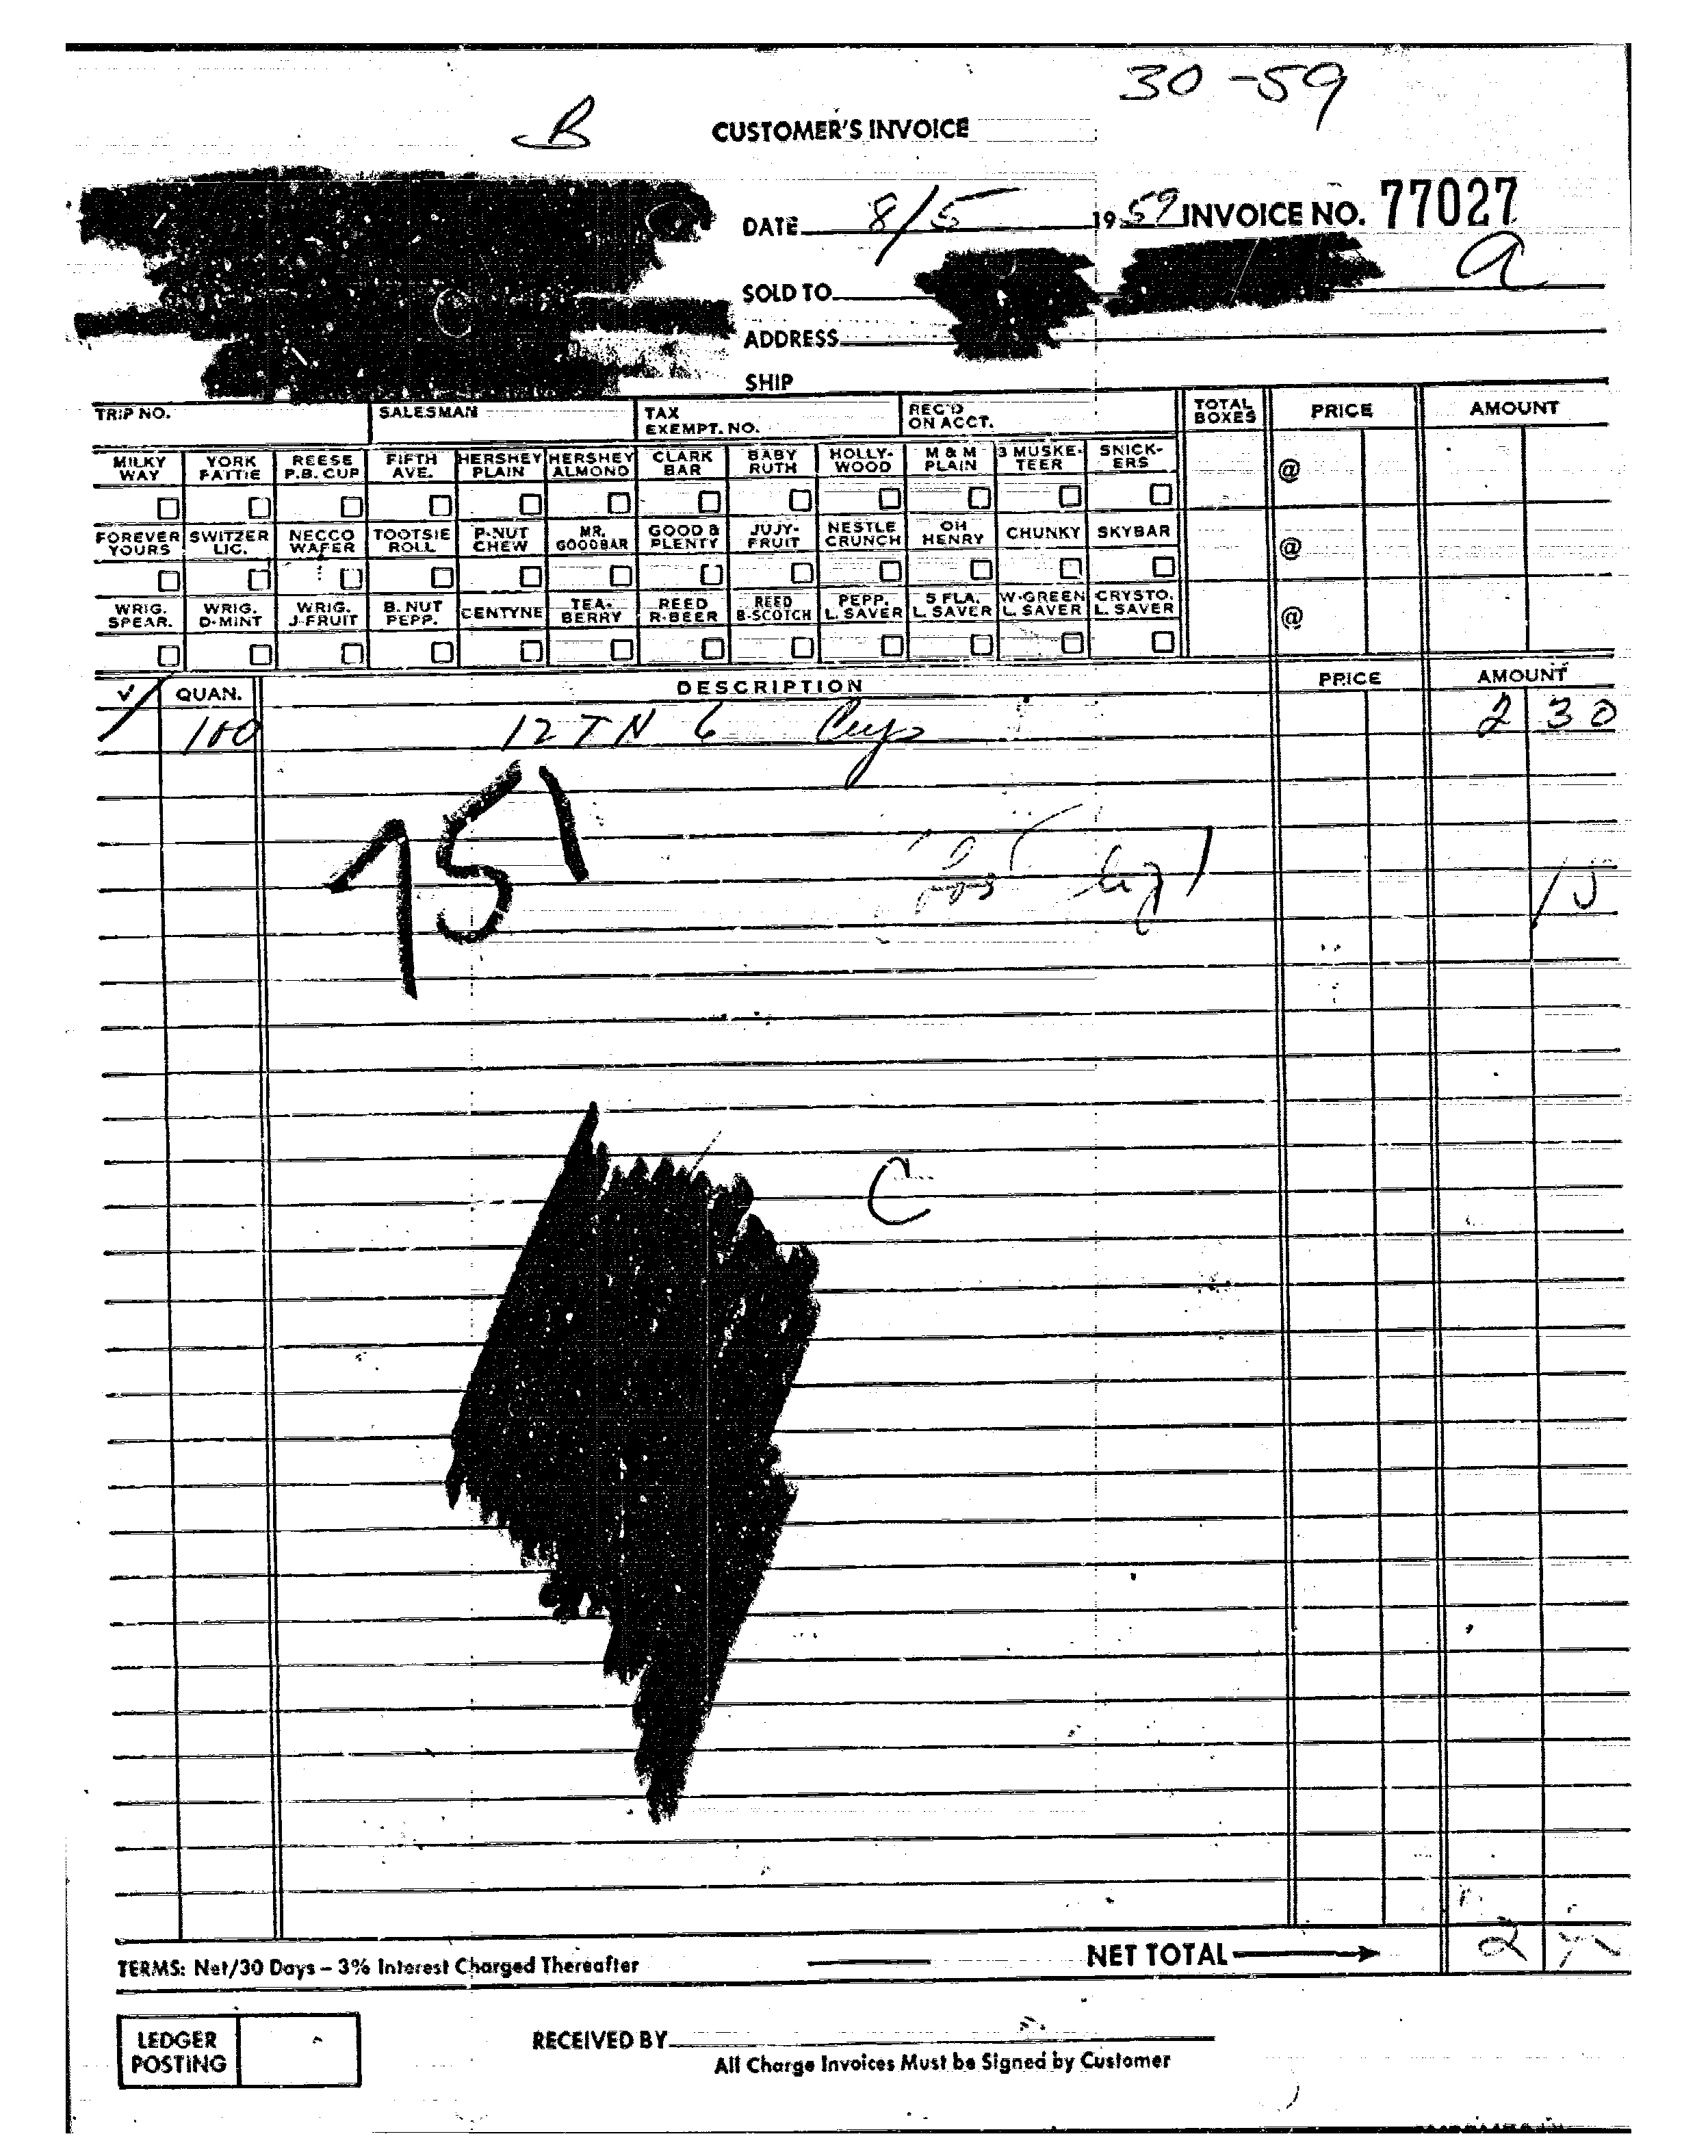 30-59
B
CUSTOMER'S INVOICE
DATE 8/5 1959 INVOICE NO. 77027
SOLD TO a
ADDRESS
SHIP
TRIP NO. SALESMAN TAX EXEMPT. NO. REC'D ON ACCT. TOTAL BOXES PRICE AMOUNT
MILKY WAY YORK PATTIE REESE P.B. CUP FIFTH AVE. HERSHEY PLAIN HERSHEY ALMOND CLARK BAR BABY RUTH HOLLY-WOOD M & M PLAIN 3 MUSKE-TEER SNICK-ERS @
FOREVER YOURS SWITZER LIC. NECCO WAFER TOOTSIE ROLL P-NUT CHEW MR. GOODBAR GOOD & PLENTY JUJY-FRUIT NESTLE CRUNCH OH HENRY CHUNKY SKYBAR @
WRIG. SPEAR. WRIG. D-MINT WRIG. J-FRUIT B. NUT PEPP. CENTYNE TEA-BERRY REED R-BEER REED B-SCOTCH PEPP. L. SAVER 5 FLA. L. SAVER W-GREEN L. SAVER CRYSTO. L. SAVER @
✓ QUAN. DESCRIPTION PRICE AMOUNT
100 12 TN 6 Cups 2 30
C
TERMS: Net/30 Days – 3% Interest Charged Thereafter NET TOTAL
LEDGER POSTING
RECEIVED BY
All Charge Invoices Must be Signed by Customer